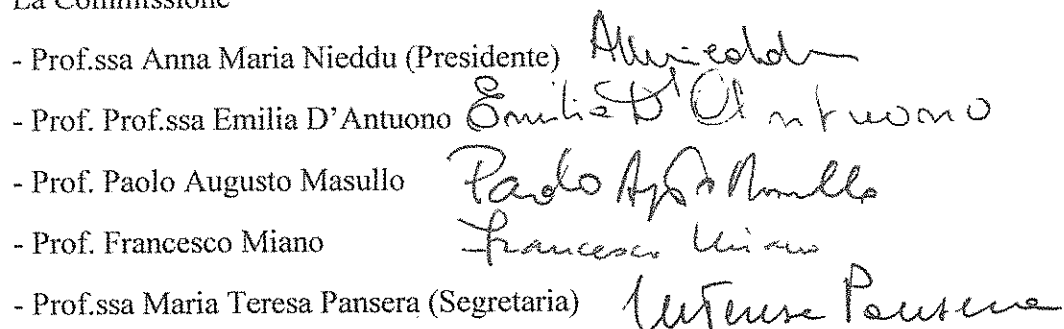 La Commissione
- Prof.ssa Anna Maria Nieddu (Presidente) AMNieddu
- Prof. Prof.ssa Emilia D'Antuono Emilia D'Antuono
- Prof. Paolo Augusto Masullo Paolo Masullo
- Prof. Francesco Miano Francesco Miano
- Prof.ssa Maria Teresa Pansera (Segretaria) MTeresa Pansera